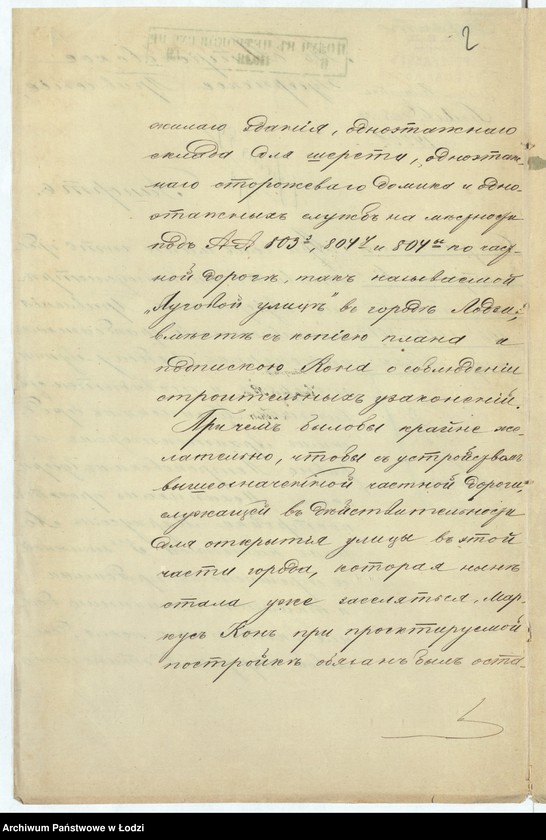 2
жилаго зданія, одноэтажнаго
склада для шерсти, одноэтаж-
наго сторожеваго домика и одно-
этажныхъ службъ на мѣстности
подъ №№ 803, 804 и 804 по част-
ной дорогѣ, такъ называемой
„Луговой улицѣ" въ городѣ Лодзи,
вмѣстѣ съ копіею плана и
подпискою Кона о соблюденіи
строительныхъ узаконеній.
При чемъ былобы крайне же-
лательно, чтобы съ устройствомъ
вышеозначенной частной дороги,
служащей въ дѣйствительности
для открытія улицы въ этой
части города, которая нынѣ
стала уже заселяться, Мар-
кусъ Конъ при проэктируемой
постройкѣ обязанъ былъ оста-
Archiwum Państwowe w Łodzi